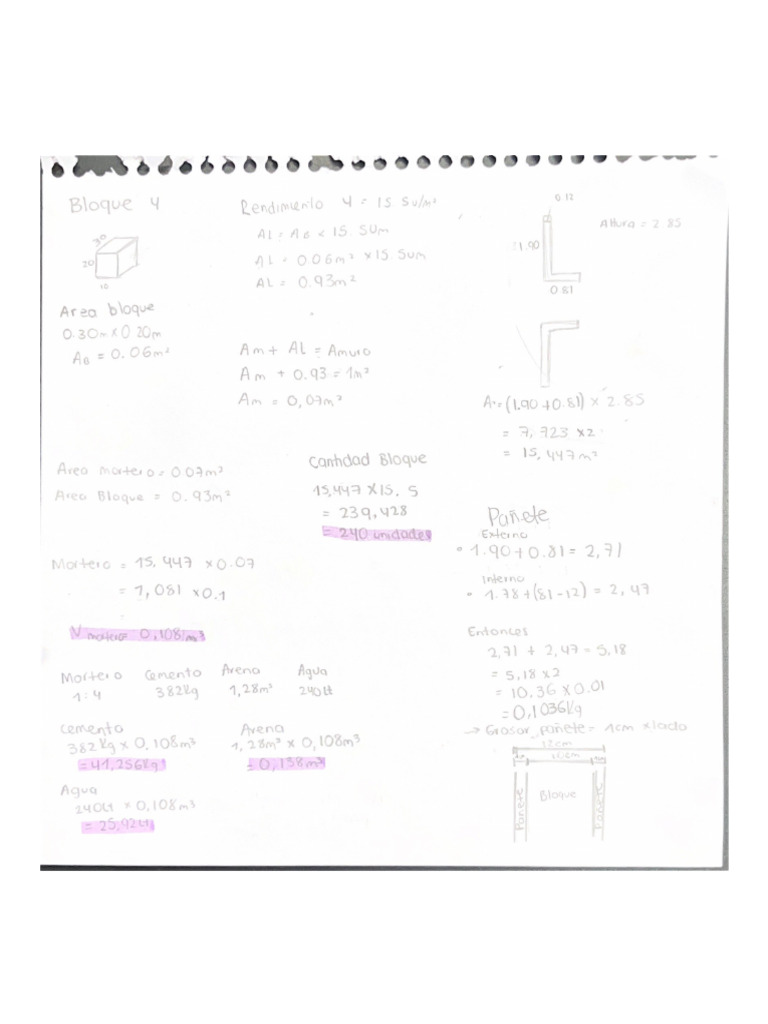 Bloque 4
30
20
10
Area bloque
0.30m x 0.20m
AB = 0.06m²
Rendimiento 4 = 15.5u/m²
AL = AB x 15.5um
AL = 0.06m² x 15.5um
AL = 0.93m²
Am + AL = Amuro
Am + 0.93 = 1m²
Am = 0,07m²
0.12
1.90
0.81
Altura = 2.85
A = (1.90 + 0.81) x 2.85
= 7,723 x2
= 15,447m²
Area mortero = 0.07m²
Area Bloque = 0.93m²
Cantidad Bloque
15,447 x 15,5
= 239,428
= 240 unidades
Mortero = 15.447 x 0.07
= 1,081 x 0.1
=
V mortero 0,108/m³
Mortero Cemento Arena Agua
1:4 382kg 1,28m³ 240Lt
Cemento
382kg x 0,108m³
= 41,256kg
Arena
1,28m³ x 0,108m³
= 0,138m³
Agua
240Lt x 0,108m³
= 25,92Lt
Pañete
Externo
• 1.90 + 0.81 = 2,71
Interno
• 1.78 + (81-12) = 2,47
Entonces
2,71 + 2,47 = 5,18
= 5,18 x 2
= 10,36 x 0.01
= 0,1036kg
→ Grosor pañete = 1cm x lado
12cm
10cm
Pañete
Bloque
Pañete